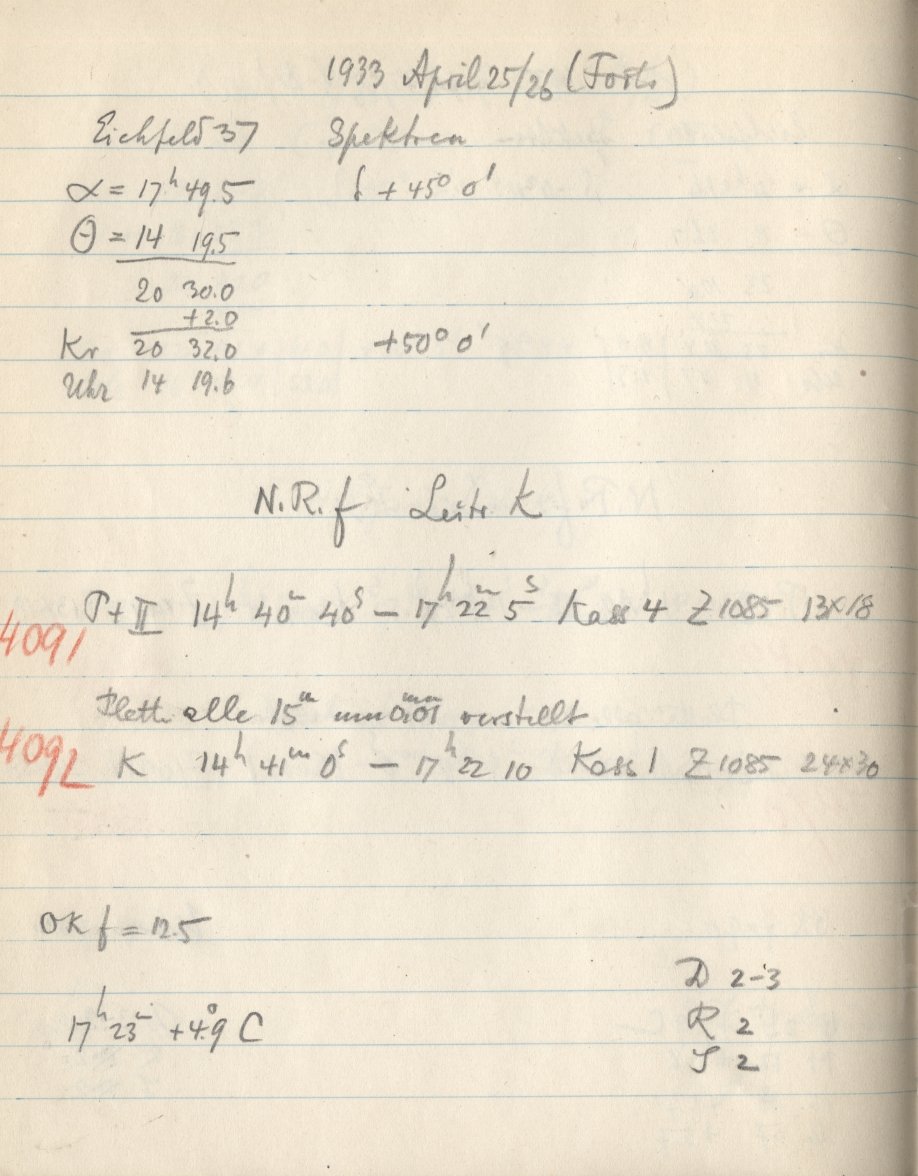 1933 April 25/26 (Forts.)
Eichfeld 37 Spektren
α = 17ʰ 49.5 δ + 45° 0'
Θ = 14 19.5
20 30.0
+2.0
Kr 20 32.0 +50° 0'
Uhr 14 19.6
N.R. f Leitr. K
P+II 14ʰ 40ᵐ 40ˢ – 17ʰ 22ᵐ 5ˢ Kass 4 Z 1085 13×18
4091
Platte alle 15ᵐ um 0.01ᵐᵐ verstellt
4092 K 14ʰ 41ᵐ 0ˢ – 17ʰ 22 10 Kass 1 Z 1085 24×30
OK f = 12.5
D 2-3
17ʰ 23ᵐ +4.°9 C R 2
S 2